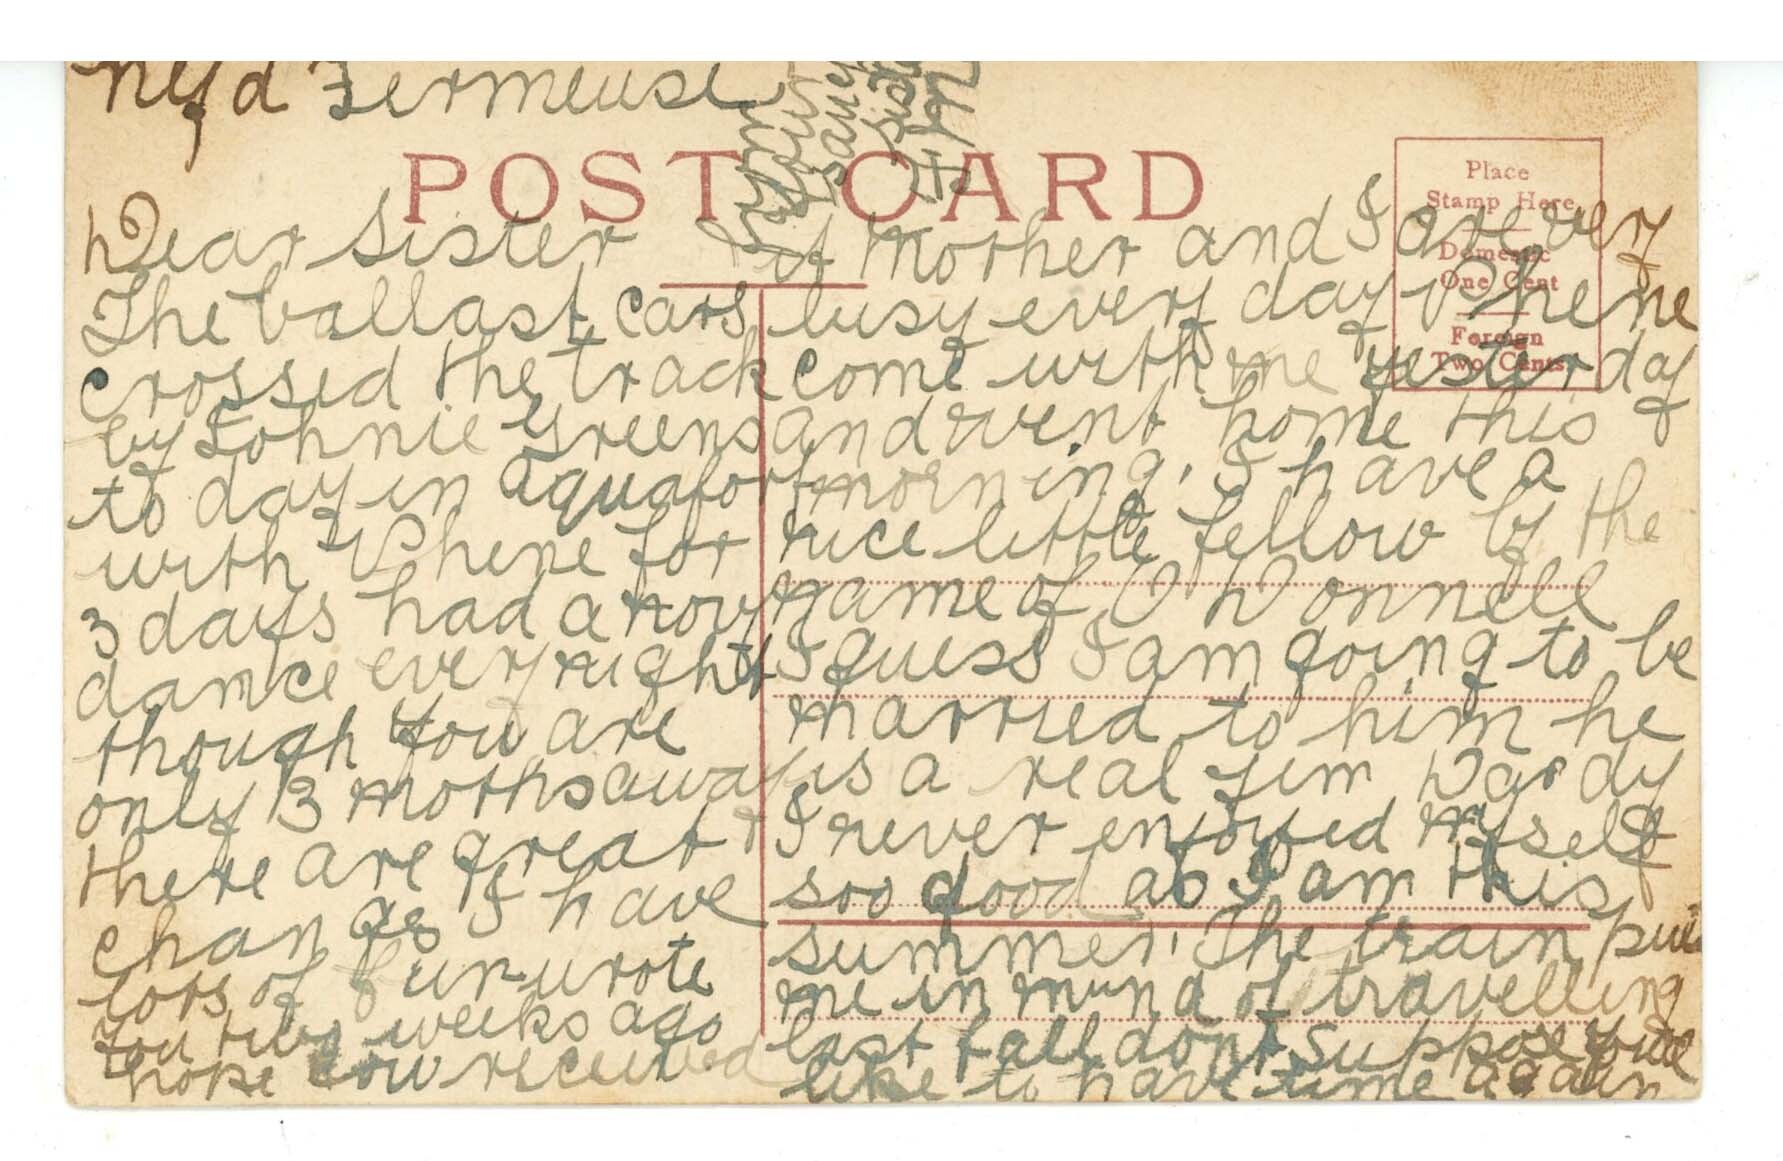 Nfld Fermeuse
POST CARD
Place
Stamp Here
Domestic
One Cent
Foreign
Two Cents
Dear Sister
The ballast cars
crossed the track
by Johnnie Greens
to day in Aquafort
with Phene for
3 days had a
dance every night
though you are
only 3 moths away
there are great
changes I have
lots of fun wrote
you two weeks ago
hope you received
it Mother and I are very
busy every day Phene
come with me yesterday
and went home this
morning. I have a
nice little fellow by the
name of O Donnell
I guess I am going to be
married to him he
is a real Jim Dandy
I never enjoyed myself
soo good as I am this
summer. The train puts
me in mind of travelling
last fall dont suppose youll
like to have time again
from
your
saucy
sister